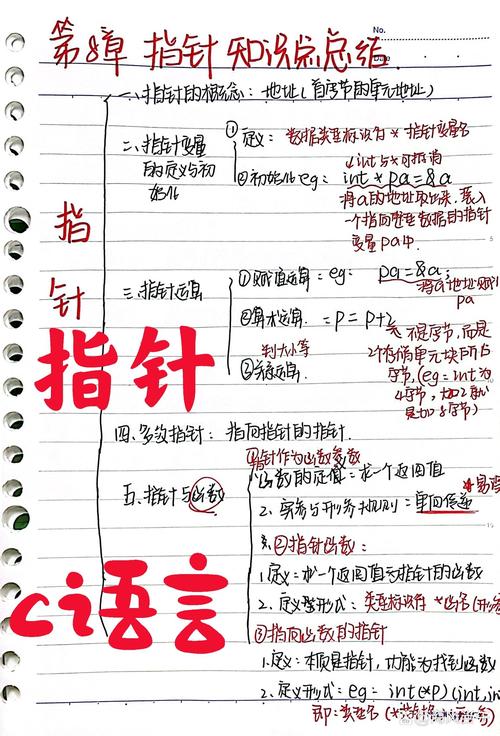 第8章 指针知识点总结.
No.
Date
一、指针的概念：地址（首字节的单元地址）
二、指针变量的定义与初始化
① 定义： 数据类型标识符 * 指针变量名
int与*可抵消
②初始化 eg： int * pa = &a
将a的地址取出来，装入
一个指向整型数据的指针
变量pa中.
指针
三、指针运算
①赋值运算：eg： pa = &a;
将a地址赋给
pa
②算术运算：= p = p+2
不是字节，而是
2个存储单元块所占
字节，(eg=int为
4字节，加2就
是加8字节)
判大小等
③关系运算：
指针
四、多级指针：指向指针的指针.
五、指针与函数
①指针作为函数参数
1.函数的返值：求一个返回值
2、实参与形参规则：单向传递
易弯
②指针函数：
1.定义：求一个返回值为指针的函数
2、定义型形式：类型标识符 *函数名(形参
c语言
③指向函数的指针
1.定义：本质是指针，功能为找到函数
2、定义形式：eg= int(*p)(int,in
即：类型名 (*指针名)